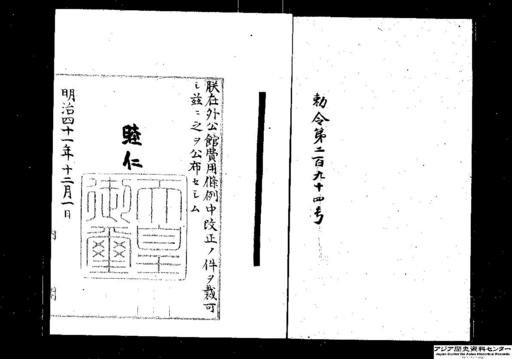 勅令第二百九十四号
朕在外公館費用條例中改正ノ件ヲ裁可
シ茲ニ之ヲ公布セシム
睦仁
天皇
御璽
明治四十一年十二月一日
アジア歴史資料センター
Japan Center for Asian Historical Records